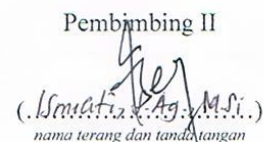 Pembimbing II
(Ismiati, S.Ag., M.Si.)
nama terang dan tanda tangan